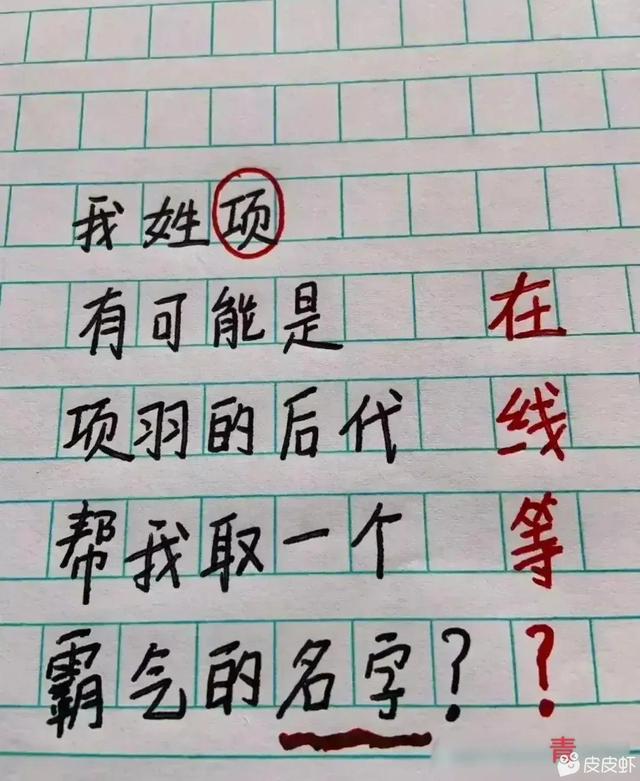 我姓项
有可能是
项羽的后代
帮我取一个
霸气的名字?
在线等?
青
皮皮虾